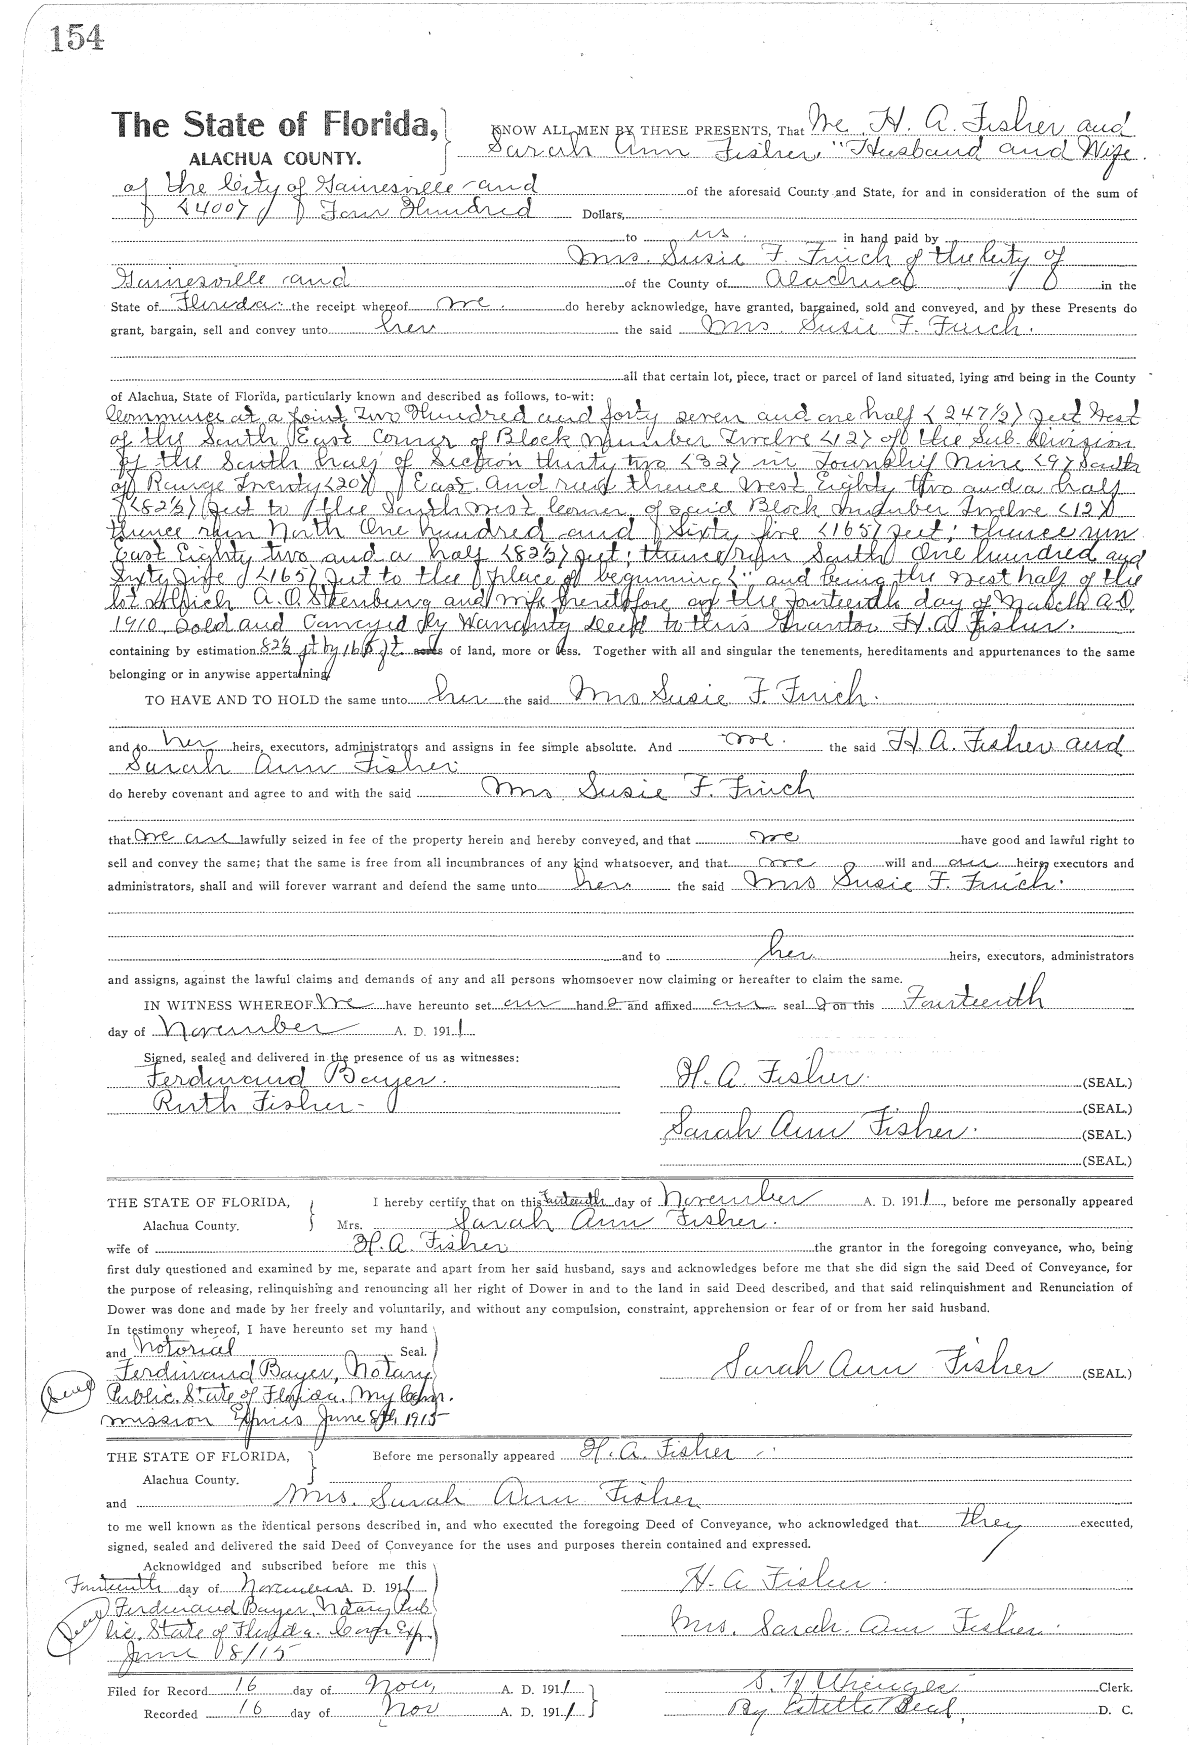 154
The State of Florida,
ALACHUA COUNTY.
KNOW ALL MEN BY THESE PRESENTS, That We, H. A. Fisher and
Sarah Ann Fisher, "Husband and Wife
of the City of Gainesville and of the aforesaid County and State, for and in consideration of the sum of
<400> Four Hundred Dollars,
to us in hand paid by
Mrs. Susie F. Finch of the City of
Gainesville and of the County of Alachua in the
State of Florida the receipt whereof we do hereby acknowledge, have granted, bargained, sold and conveyed, and by these Presents do
grant, bargain, sell and convey unto her the said Mrs. Susie F. Finch.
all that certain lot, piece, tract or parcel of land situated, lying and being in the County
of Alachua, State of Florida, particularly known and described as follows, to-wit:
Commence at a point Two Hundred and forty seven and one half <247½> feet West
of the South East Corner of Block number Twelve <12> of the Sub-division
of the South half of Section thirty two <32> in Township Nine <9> South
of Range Twenty <20> East. And run thence West Eighty two and a half
<82½> feet to the South west corner of said Block Number Twelve <12>
thence run North One hundred and Sixty five <165> feet; thence run
East Eighty two and a half <82½> feet; thence run South One hundred and
Sixty five <165> feet to the place of beginning <" and being the West half of the
lot which A. O. Steenburg and wife heretofore on the fourteenth day of March A.D.
1910, sold and Conveyed by Warranty Deed to this Grantor H. A. Fisher.
containing by estimation 82½ ft by 165 ft. acres of land, more or less. Together with all and singular the tenements, hereditaments and appurtenances to the same
belonging or in anywise appertaining.
TO HAVE AND TO HOLD the same unto her the said Mrs. Susie F. Finch.
and to her heirs, executors, administrators and assigns in fee simple absolute. And we the said H. A. Fisher and
Sarah Ann Fisher
do hereby covenant and agree to and with the said Mrs. Susie F. Finch
that we are lawfully seized in fee of the property herein and hereby conveyed, and that we have good and lawful right to
sell and convey the same; that the same is free from all incumbrances of any kind whatsoever, and that we will and our heirs, executors and
administrators, shall and will forever warrant and defend the same unto her the said Mrs Susie F. Finch.
and to her heirs, executors, administrators
and assigns, against the lawful claims and demands of any and all persons whomsoever now claiming or hereafter to claim the same.
IN WITNESS WHEREOF We have hereunto set our hand s and affixed our seal s on this Fourteenth
day of November A. D. 1911
Signed, sealed and delivered in the presence of us as witnesses:
Ferdinand Bayer. H. A. Fisher. (SEAL.)
Ruth Fisher- (SEAL.)
Sarah Ann Fisher. (SEAL.)
(SEAL.)
THE STATE OF FLORIDA,
Alachua County.
I hereby certify that on this Fourteenth day of November A. D. 1911, before me personally appeared
Mrs. Sarah Ann Fisher.
wife of H. A. Fisher the grantor in the foregoing conveyance, who, being
first duly questioned and examined by me, separate and apart from her said husband, says and acknowledges before me that she did sign the said Deed of Conveyance, for
the purpose of releasing, relinquishing and renouncing all her right of Dower in and to the land in said Deed described, and that said relinquishment and Renunciation of
Dower was done and made by her freely and voluntarily, and without any compulsion, constraint, apprehension or fear of or from her said husband.
In testimony whereof, I have hereunto set my hand
and Notorial Seal.
Ferdinand Bayer, Notary Sarah Ann Fisher (SEAL)
Seal Public. State of Florida. My Com-
mission Expires June 8th, 1915
THE STATE OF FLORIDA,
Alachua County.
Before me personally appeared H. A. Fisher
and Mrs. Sarah Ann Fisher
to me well known as the identical persons described in, and who executed the foregoing Deed of Conveyance, who acknowledged that they executed,
signed, sealed and delivered the said Deed of Conveyance for the uses and purposes therein contained and expressed.
Acknowldged and subscribed before me this
Fourteenth day of November A. D. 1911 H. A Fisher.
Ferdinand Bayer, Notary Pub
Seal lic, State of Florida. Com Exp. Mrs. Sarah. Ann Fisher.
June 8/15
Filed for Record 16 day of Nov, A. D. 1911 S. H Clerk.
Recorded 16 day of Nov A. D. 1911 By Estelle Beal, D. C.